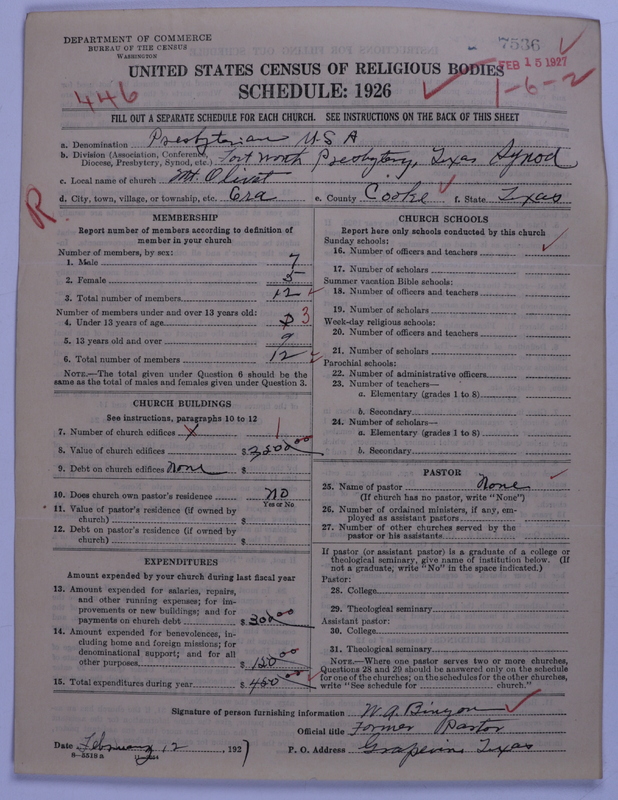 DEPARTMENT OF COMMERCE
BUREAU OF THE CENSUS
WASHINGTON
7536
FEB 15 1927
UNITED STATES CENSUS OF RELIGIOUS BODIES
446
SCHEDULE: 1926
1-6-2
FILL OUT A SEPARATE SCHEDULE FOR EACH CHURCH. SEE INSTRUCTIONS ON THE BACK OF THIS SHEET
a. Denomination Presbyterian U.S.A
b. Division (Association, Conference, Diocese, Presbytery, Synod, etc.) Fort Worth Presbytery, Texas Synod
c. Local name of church Mt. Olivet
d. City, town, village, or township, etc. Era e. County Cooke f. State Texas
R
MEMBERSHIP
Report number of members according to definition of
member in your church
Number of members, by sex:
1. Male 7
2. Female 5
3. Total number of members 12
Number of members under and over 13 years old:
4. Under 13 years of age 3
5. 13 years old and over 9
6. Total number of members 12
NOTE.—The total given under Question 6 should be
same as the total of males and females given under Question 3.
CHURCH BUILDINGS
See instructions, paragraphs 10 to 12
7. Number of church edifices 1
8. Value of church edifices $ 3500 00
9. Debt on church edifices None $
10. Does church own pastor's residence NO
Yes or No
11. Value of pastor's residence (if owned by
church) $
12. Debt on pastor's residence (if owned by
church) $
EXPENDITURES
Amount expended by your church during last fiscal year
13. Amount expended for salaries, repairs,
and other running expenses; for im-
provements or new buildings; and for
payments on church debt $ 300 00
14. Amount expended for benevolences, in-
cluding home and foreign missions; for
denominational support; and for all
other purposes $ 150 00
15. Total expenditures during year $ 450 00
CHURCH SCHOOLS
Report here only schools conducted by this church
Sunday schools:
16. Number of officers and teachers
17. Number of scholars
Summer vacation Bible schools:
18. Number of officers and teachers
19. Number of scholars
Week-day religious schools:
20. Number of officers and teachers
21. Number of scholars
Parochial schools:
22. Number of administrative officers
23. Number of teachers—
a. Elementary (grades 1 to 8)
b. Secondary
24. Number of scholars—
a. Elementary (grades 1 to 8)
b. Secondary
PASTOR
25. Name of pastor None
(If church has no pastor, write "None")
26. Number of ordained ministers, if any, em-
ployed as assistant pastors
27. Number of other churches served by the
pastor or his assistants
If pastor (or assistant pastor) is a graduate of a college or
theological seminary, give name of institution below. (If
not a graduate, write "No" in the space indicated.)
Pastor:
28. College
29. Theological seminary
Assistant pastor:
30. College
31. Theological seminary
NOTE.—Where one pastor serves two or more churches,
Questions 28 and 29 should be answered only on the schedule
for one of the churches; on the schedules for the other churches,
write "See schedule for church."
Signature of person furnishing information W. A. Binyon
Official title Former Pastor
Date February 12, 1927 P. O. Address Grapevine Texas
8-5518 a